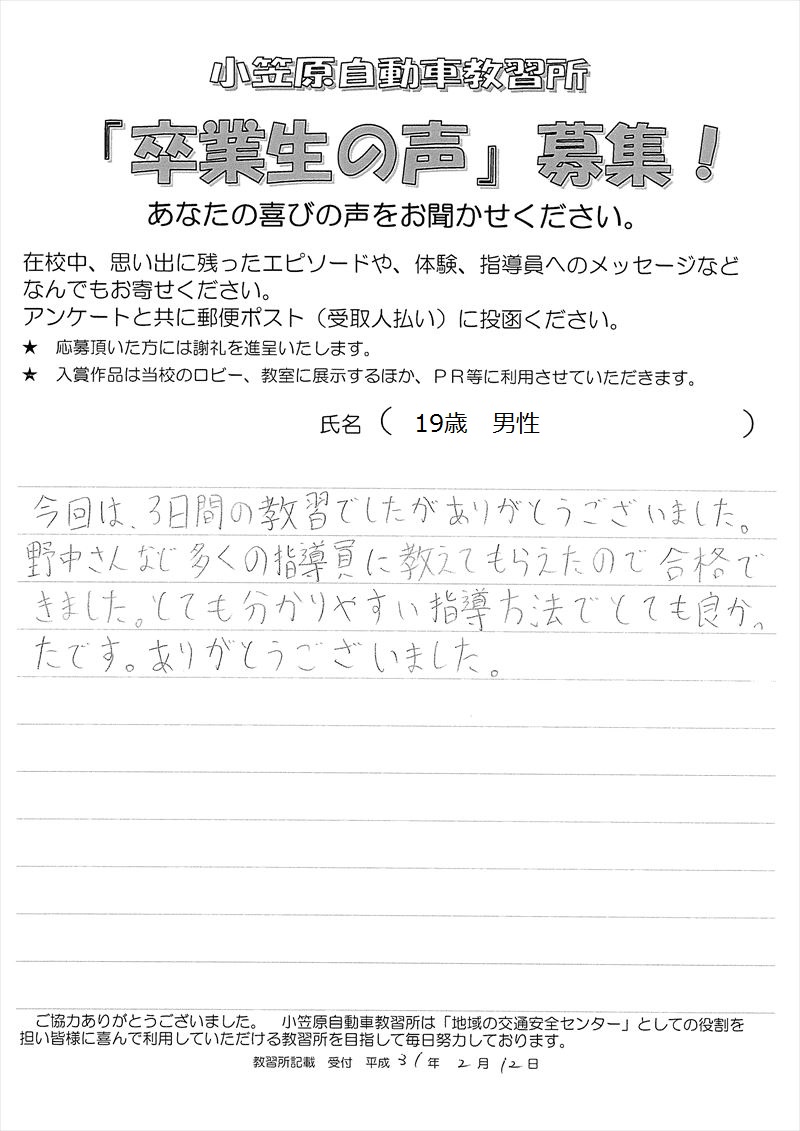 小笠原自動車教習所
『卒業生の声』募集！
あなたの喜びの声をお聞かせください。
在校中、思い出に残ったエピソードや、体験、指導員へのメッセージなど
なんでもお寄せください。
アンケートと共に郵便ポスト（受取人払い）に投函ください。
★　応募頂いた方には謝礼を進呈いたします。
★　入賞作品は当校のロビー、教室に展示するほか、ＰＲ等に利用させていただきます。
氏名（　19歳　男性　）
今回は、3日間の教習でしたがありがとうございました。
野中さんなど多くの指導員に教えてもらえたので合格で
きました。とても分かりやすい指導方法でとても良かっ
たです。ありがとうございました。
ご協力ありがとうございました。　小笠原自動車教習所は「地域の交通安全センター」としての役割を
担い皆様に喜んで利用していただける教習所を目指して毎日努力しております。
教習所記載　受付　平成 31 年 2 月 12 日